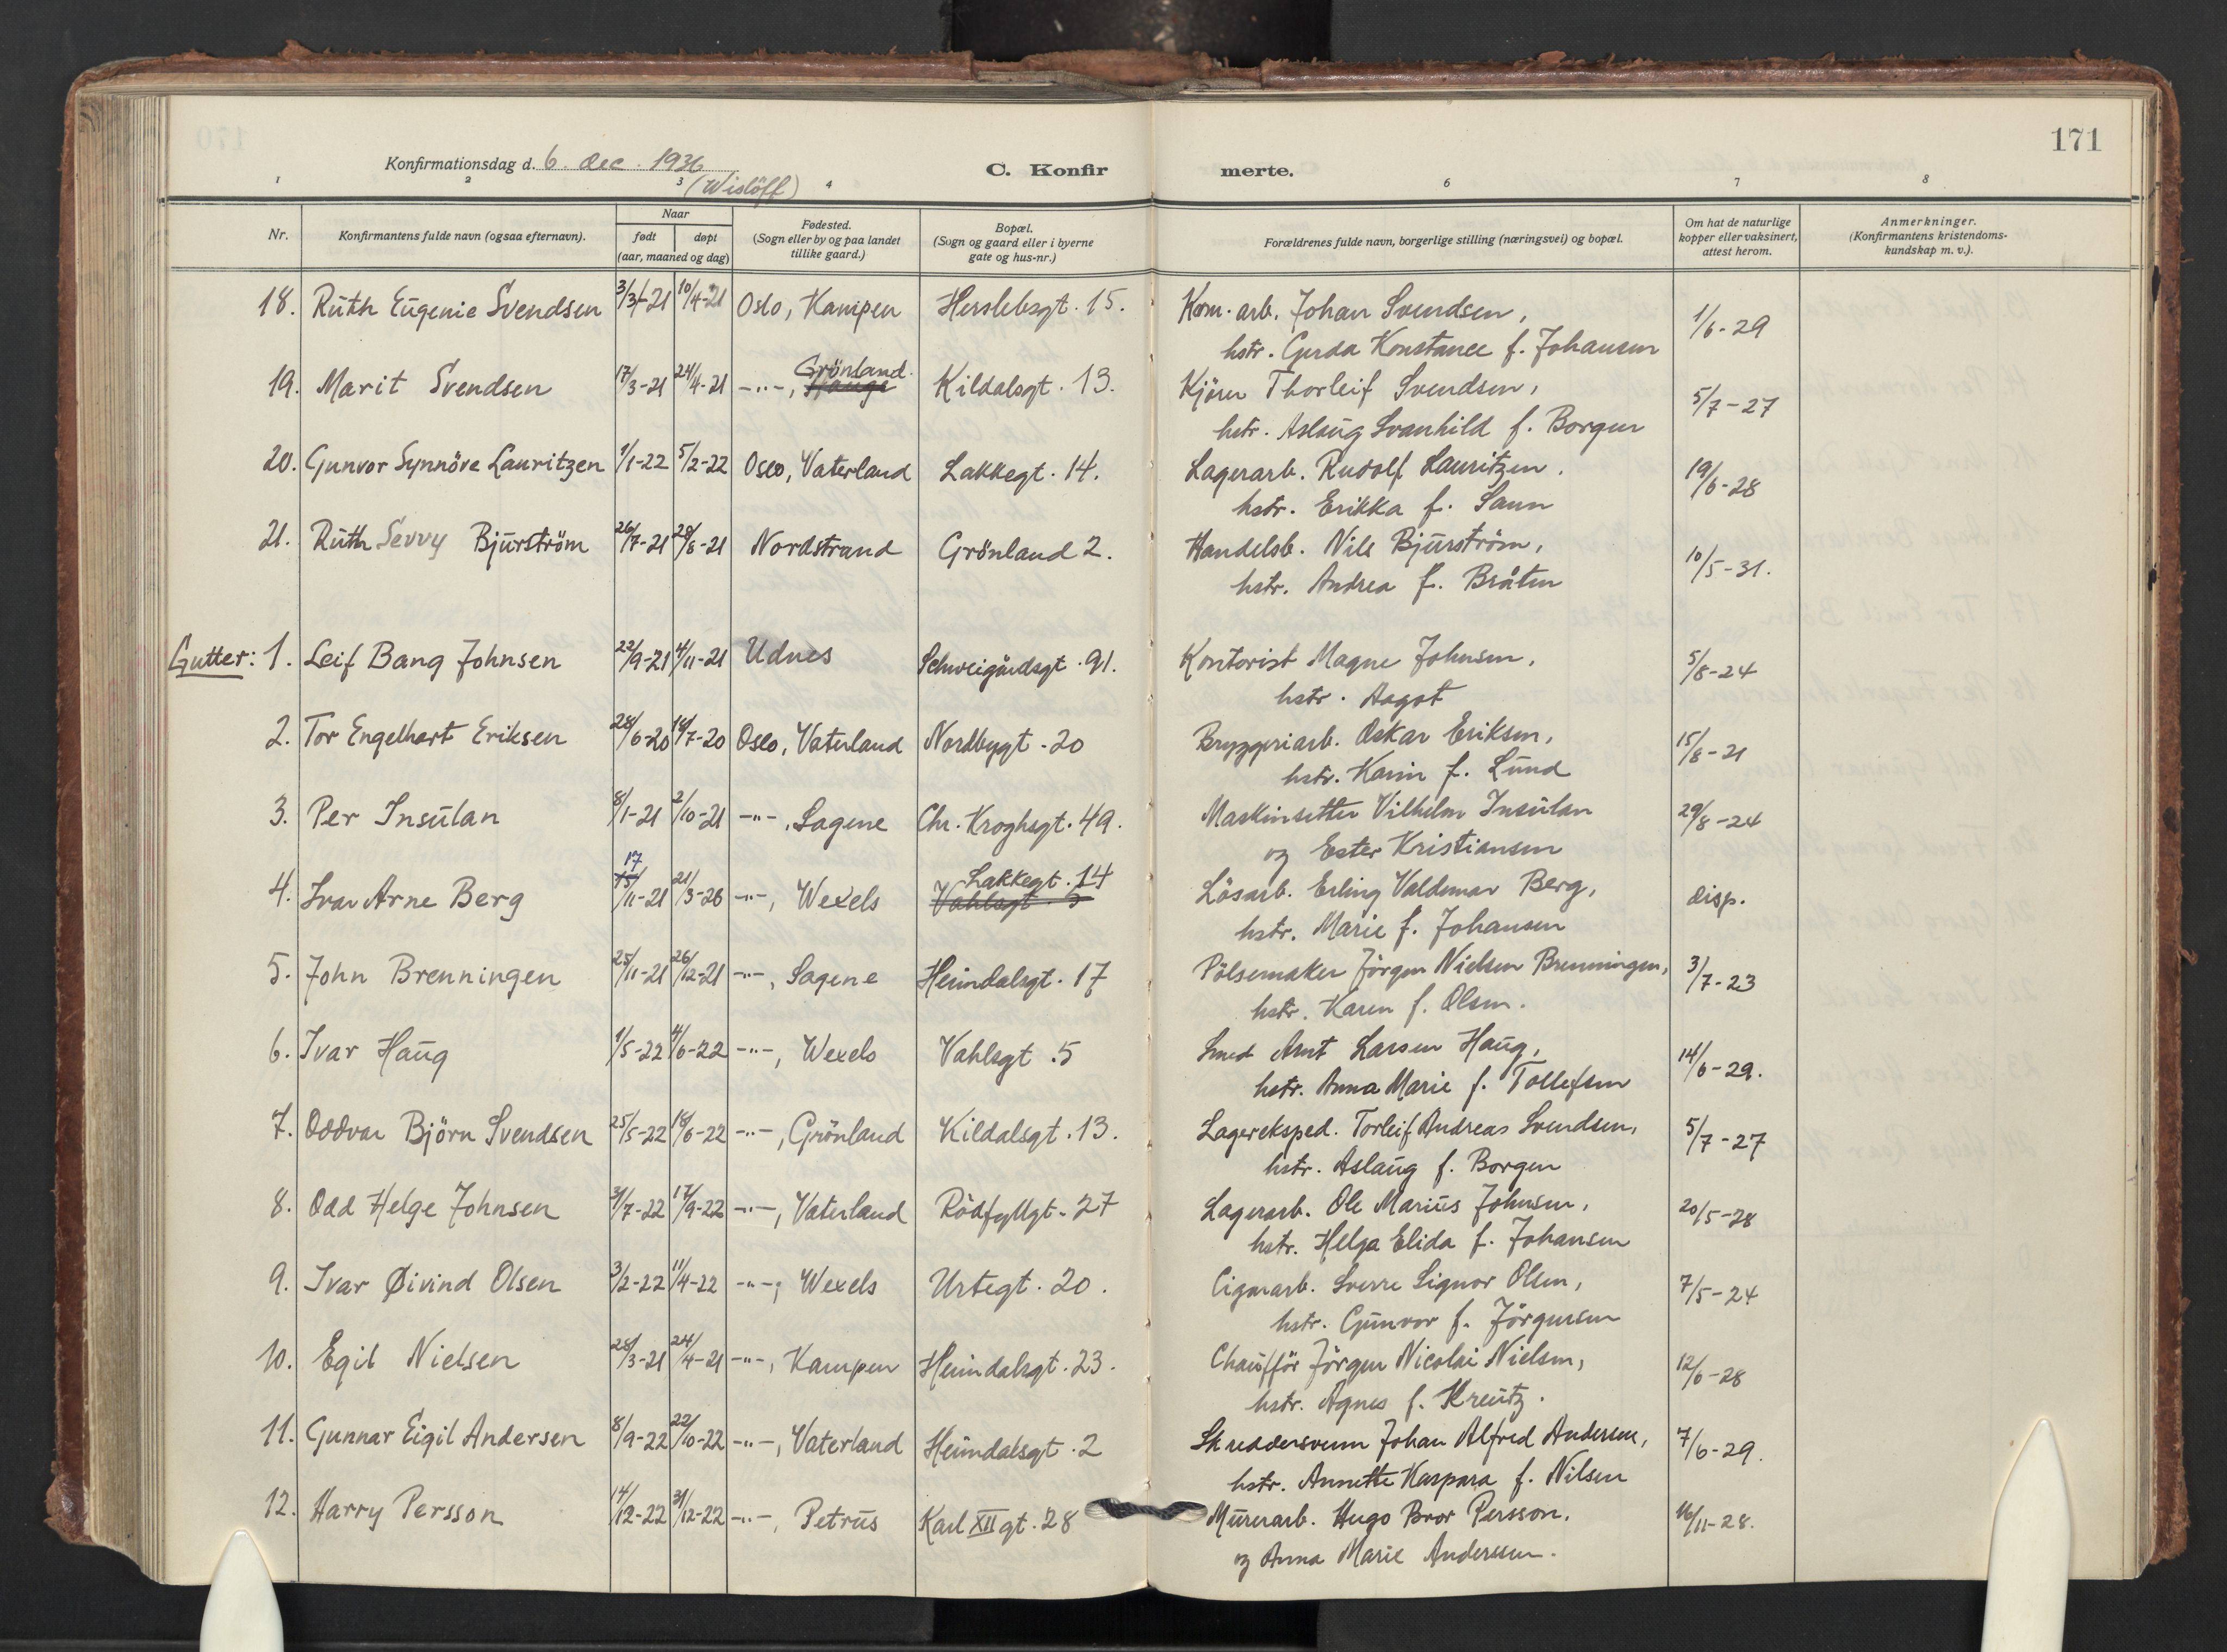 171
Konfirmationsdag d. 6. dec. 1936
(Wislöff)
C. Konfirmerte.
1 2 3 4 6 7 8
Nr.
Konfirmantens fulde navn (ogsaa efternavn).
Naar
født døpt
(aar, maaned og dag)
Fødested.
(Sogn eller by og paa landet
tillike gaard.)
Bopæl.
(Sogn og gaard eller i byerne
gate og hus-nr.)
Forældrenes fulde navn, borgerlige stilling (næringsvei) og bopæl.
Om hat de naturlige
kopper eller vaksinert,
attest herom.
Anmerkninger.
(Konfirmantens kristendoms-
kundskap m. v.).
18. Ruth Eugenie Svendsen 3/3-21 10/4-21 Oslo, Kampen Herslebsgt. 15. Kom. arb. Johan Svendsen, 1/6-29
hstr. Gerda Konstance f. Johansen
Grönland.
19. Marit Svendsen 17/3-21 24/4-21 -"-, Hauge Kildalsgt. 13. Kjörer Thorleif Svendsen, 5/7-27
hstr. Aslaug Svanhild f. Borgen
20. Gunvor Synnöve Lauritzen 1/1-22 5/2-22 Oslo, Vaterland Lakkegt. 14. Lagerarb. Rudolf Lauritzen. 19/6-28
hstr. Erikka f. Saun
21. Ruth Sevvy Bjurström 26/7-21 28/8-21 Nordstrand Grönland 2. Handelsb. Nils Bjurström, 10/5-31.
hstr. Andrea f. Bråten
Gutter: 1. Leif Bang Johnsen 22/9-21 4/11-21 Udnes Schweigårdsgt. 91. Kontorist Magne Johnsen, 5/8-24
hstr. Aagot
2. Tor Engelhart Eriksen 28/6-20 14/7-20 Oslo, Vaterland Nordbygt. 20 Bryggeriarb. Oskar Eriksen, 15/8-21
hstr. Karin f. Lund
3. Per Insulan 8/1-21 2/10-21 -"-, Sagene Chr. Kroghsgt. 49. Maskinsetter Vilhelm Insulan 29/8-24
og Ester Kristiansen
17 Lakkegt. 14
4. Ivar Arne Berg 15/11-21 21/3-26 -"-, Wexels Vahlsgt. 5 Lösarb. Erling Valdemar Berg, disp.
hstr. Marie f. Johansen
5. John Brenningen 25/11-21 26/12-21 -"-, Sagene Heimdalsgt. 17 Pölsemaker Jörgen Nielsen Brenningen, 3/7-23
hstr. Karen f. Olsen.
6. Ivar Haug 1/5-22 4/6-22 -"-, Wexels Vahlsgt. 5 Smed Arnt Larsen Haug, 14/6-29.
hstr. Anna Marie f. Tollefsen
7. Oddvar Björn Svendsen 25/5-22 18/6-22 -"-, Grönland Kildalsgt. 13. Lagereksped. Torleif Andreas Svendsen, 5/7-27
hstr. Aslaug f. Borgen
8. Odd Helge Johnsen 3/7-22 17/9-22 -"-, Vaterland Rödfyllgt. 27 Lagerarb. Ole Marius Johnsen, 20/5-28
hstr. Helga Elida f. Johansen
9. Ivar Øivind Olsen 3/2-22 11/4-22 -"-, Wexels Urtegt. 20. Cigararb. Sverre Signor Olsen, 7/5-24
hstr. Gunvor f. Jörgensen
10. Egil Nielsen 28/3-21 24/4-21 -"-, Kampen Heimdalsgt. 23. Chaufför Jörgen Nicolai Nielsen, 12/6-28
hstr. Agnes f. Kreutz.
11. Gunnar Eigil Andersen 8/9-22 22/10-22 -"-, Vaterland Heimdalsgt. 2 Skreddersvenn Johan Alfred Andersen, 7/6-29.
hstr. Annette Kaspara f. Nilsen
12. Harry Persson 14/12-22 31/12-22 -"-, Petrus Karl XII gt. 28 Murerarb. Hugo Bror Persson. 16/11-28.
og Anna Marie Andersen.